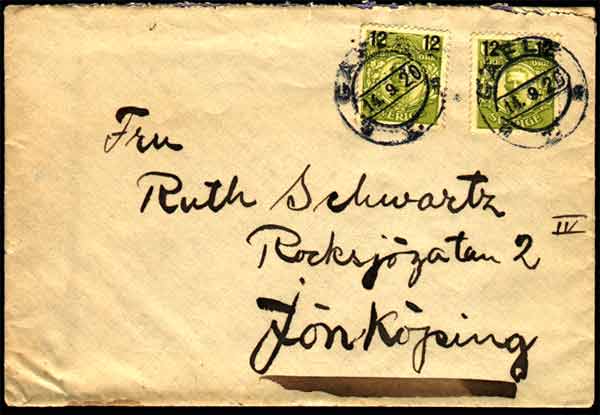 12 12 12 12
GÄVLE GÄVLE
14.9.20 14.9.20
SVERIGE SVERIGE
Fru
Ruth Schwartz
Rocksjögatan 2 IV
Jönköping